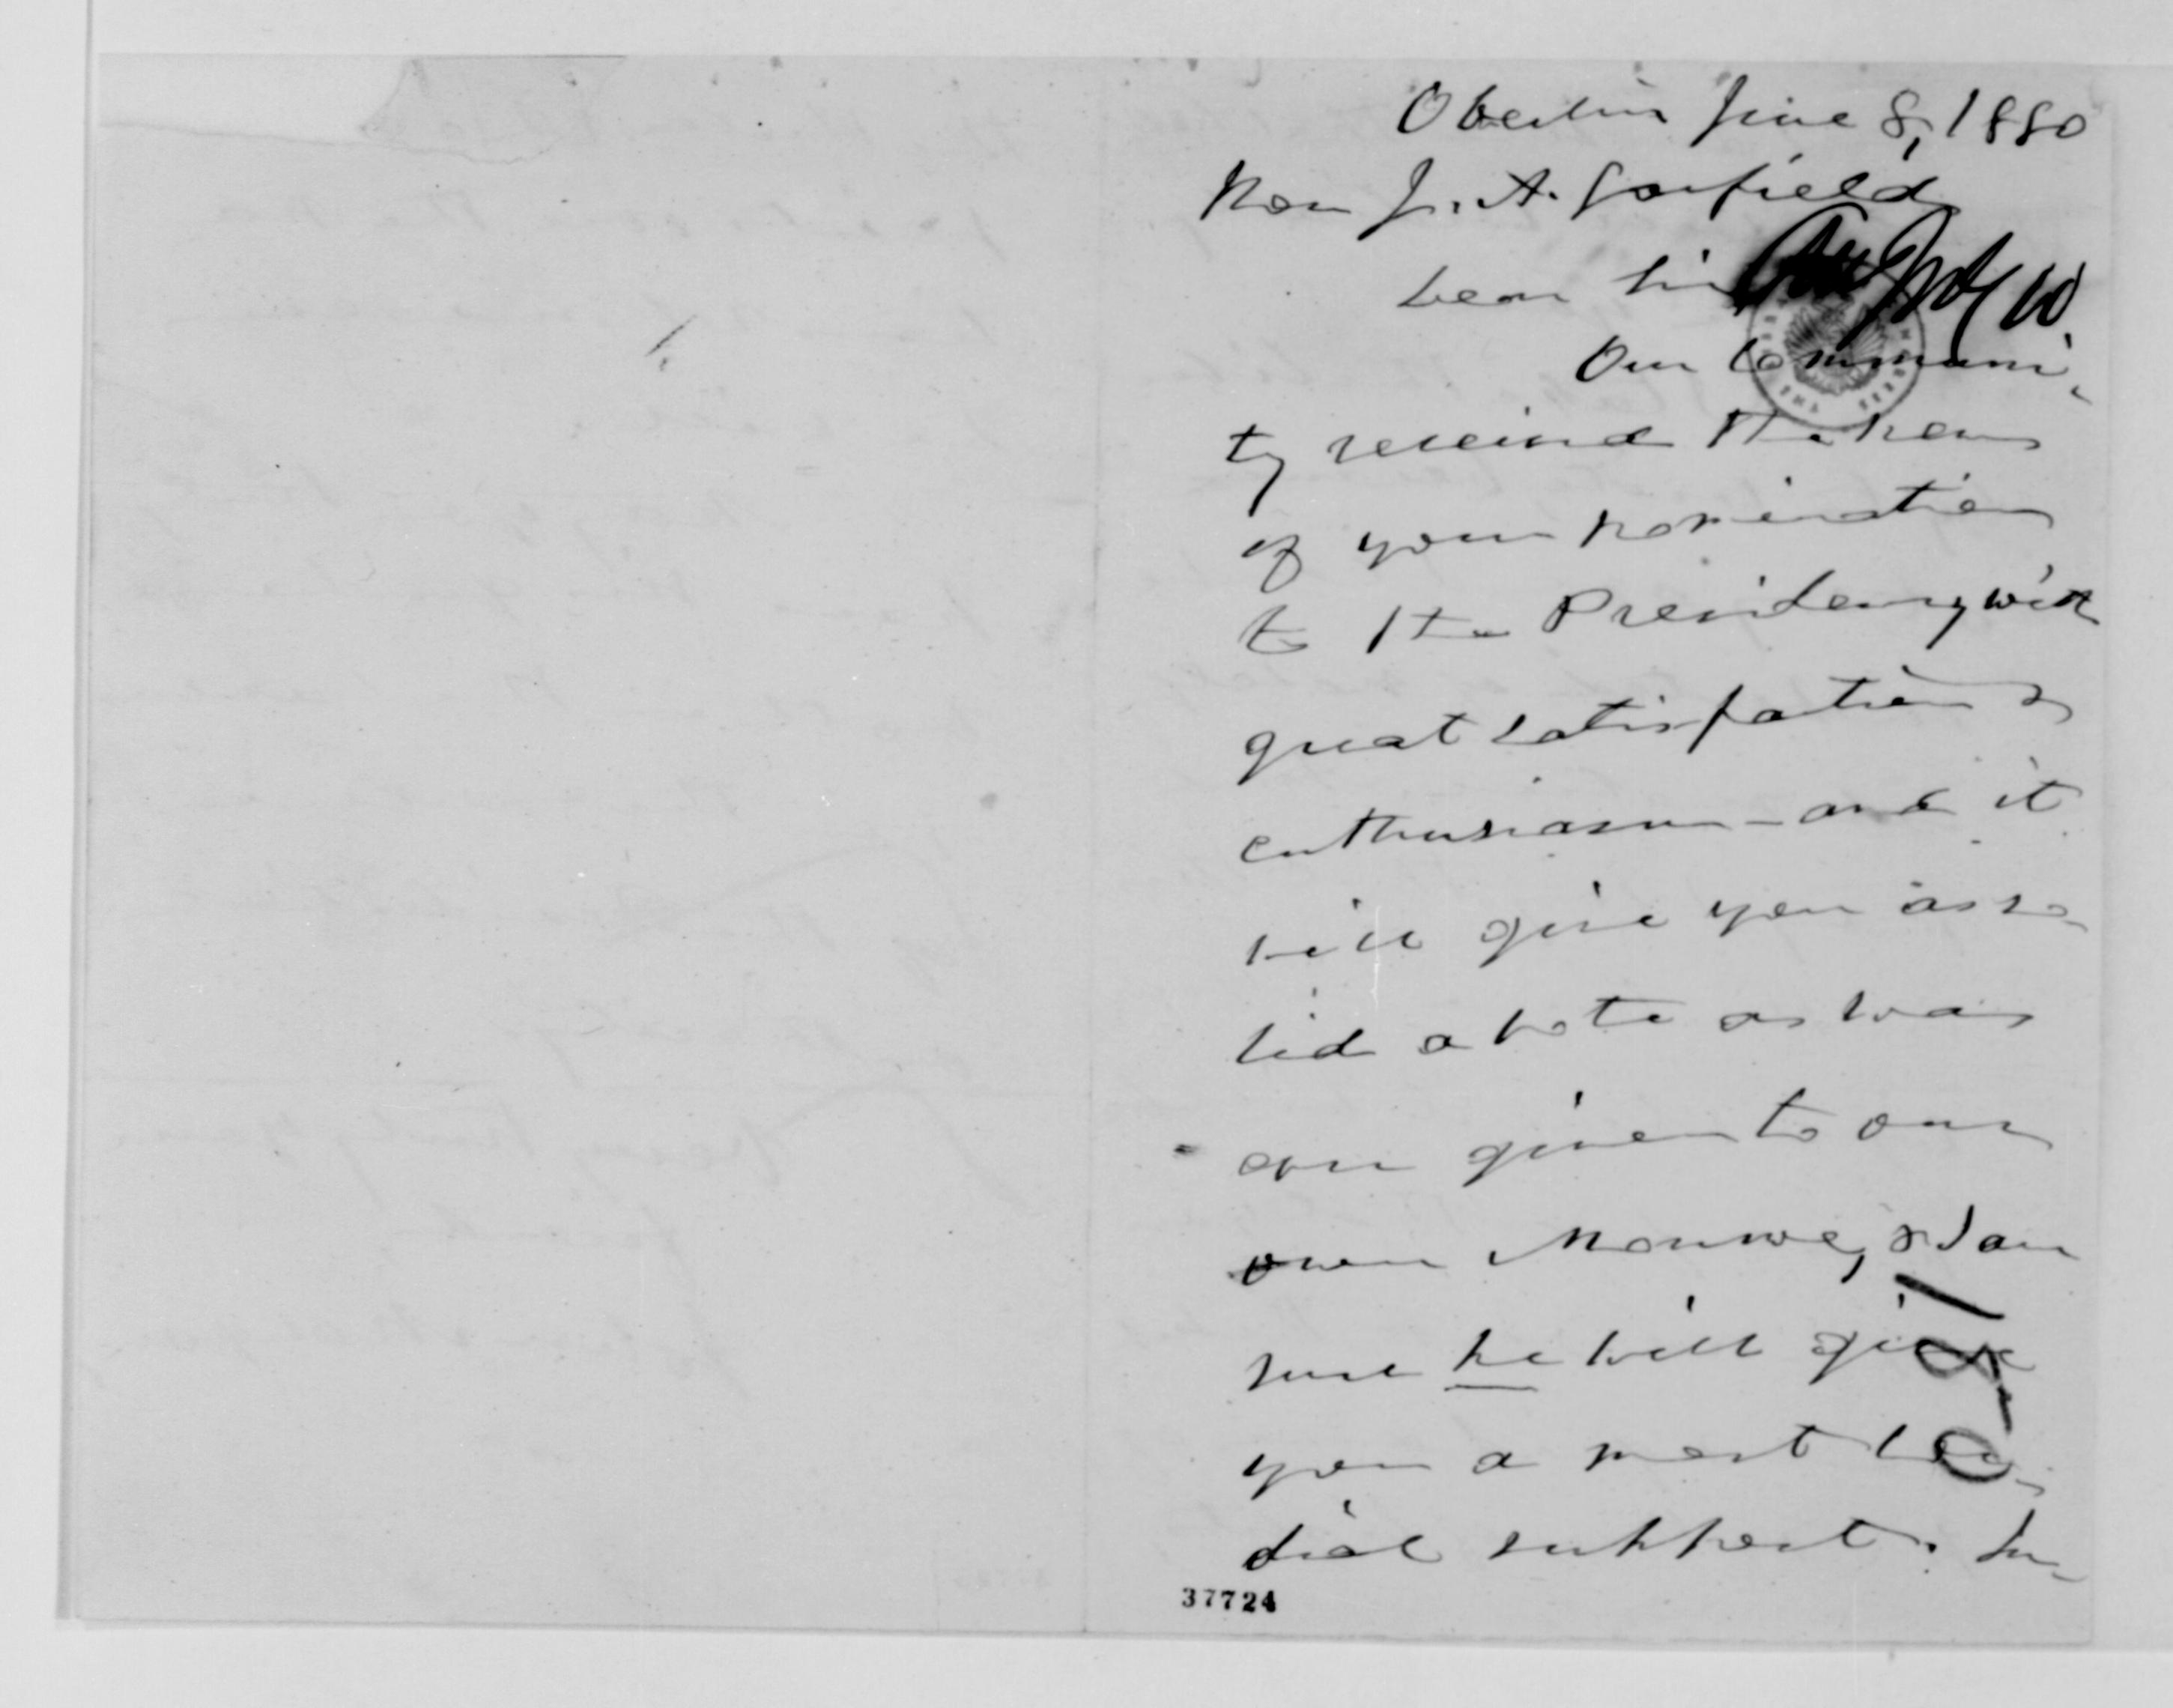 Oberlin June 8, 1880
Hon J. A. Garfield
Dear Sir
July 10
Our communi-
ty received the news
of your nomination
to the Presidency with
great satisfaction &
enthusiasm - and it
will give you as so-
lid a vote as was
ever given to our
own Monroe, & I am
sure he will give
you a most cor-
dial support. In-
37724